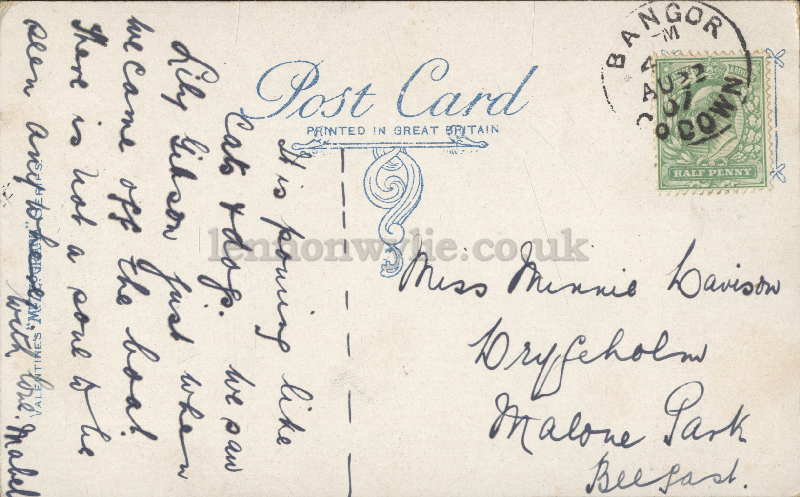 Post Card
PRINTED IN GREAT BRITAIN
BANGOR
AU 22
07
CO DOWN
HALF PENNY
It is pouring like
Cats & dogs. We saw
Lily Gibson just when
we came off the boat.
There is not a soul to be
seen anywhere.
With love. Mabel
Miss Minnie Davison
Drygeholm
Malone Park
Belfast.
VALENTINES SERIES
lennonwylie.co.uk